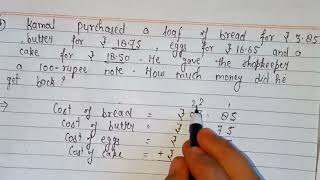 Kamal purchased a loaf of bread for ₹ 3.85
, butter for ₹ 18.75 , eggs for ₹ 16.65 and a
cake for ₹ 18.50 . He gave the shopkeeper
a 100-rupee note . How much money did he
get back?
2 2 1
Cost of bread = ₹ 85
Cost of butter = ₹ 75
Cost of eggs = ₹
Cost of cake = + ₹